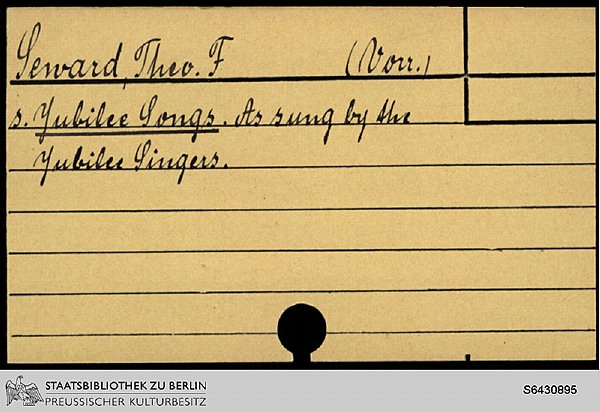 Seward, Theo. F (Vorr.)
s. Jubilee Songs. As sung by the
Jubilee Singers.
STAATSBIBLIOTHEK ZU BERLIN
PREUSSISCHER KULTURBESITZ
S6430895